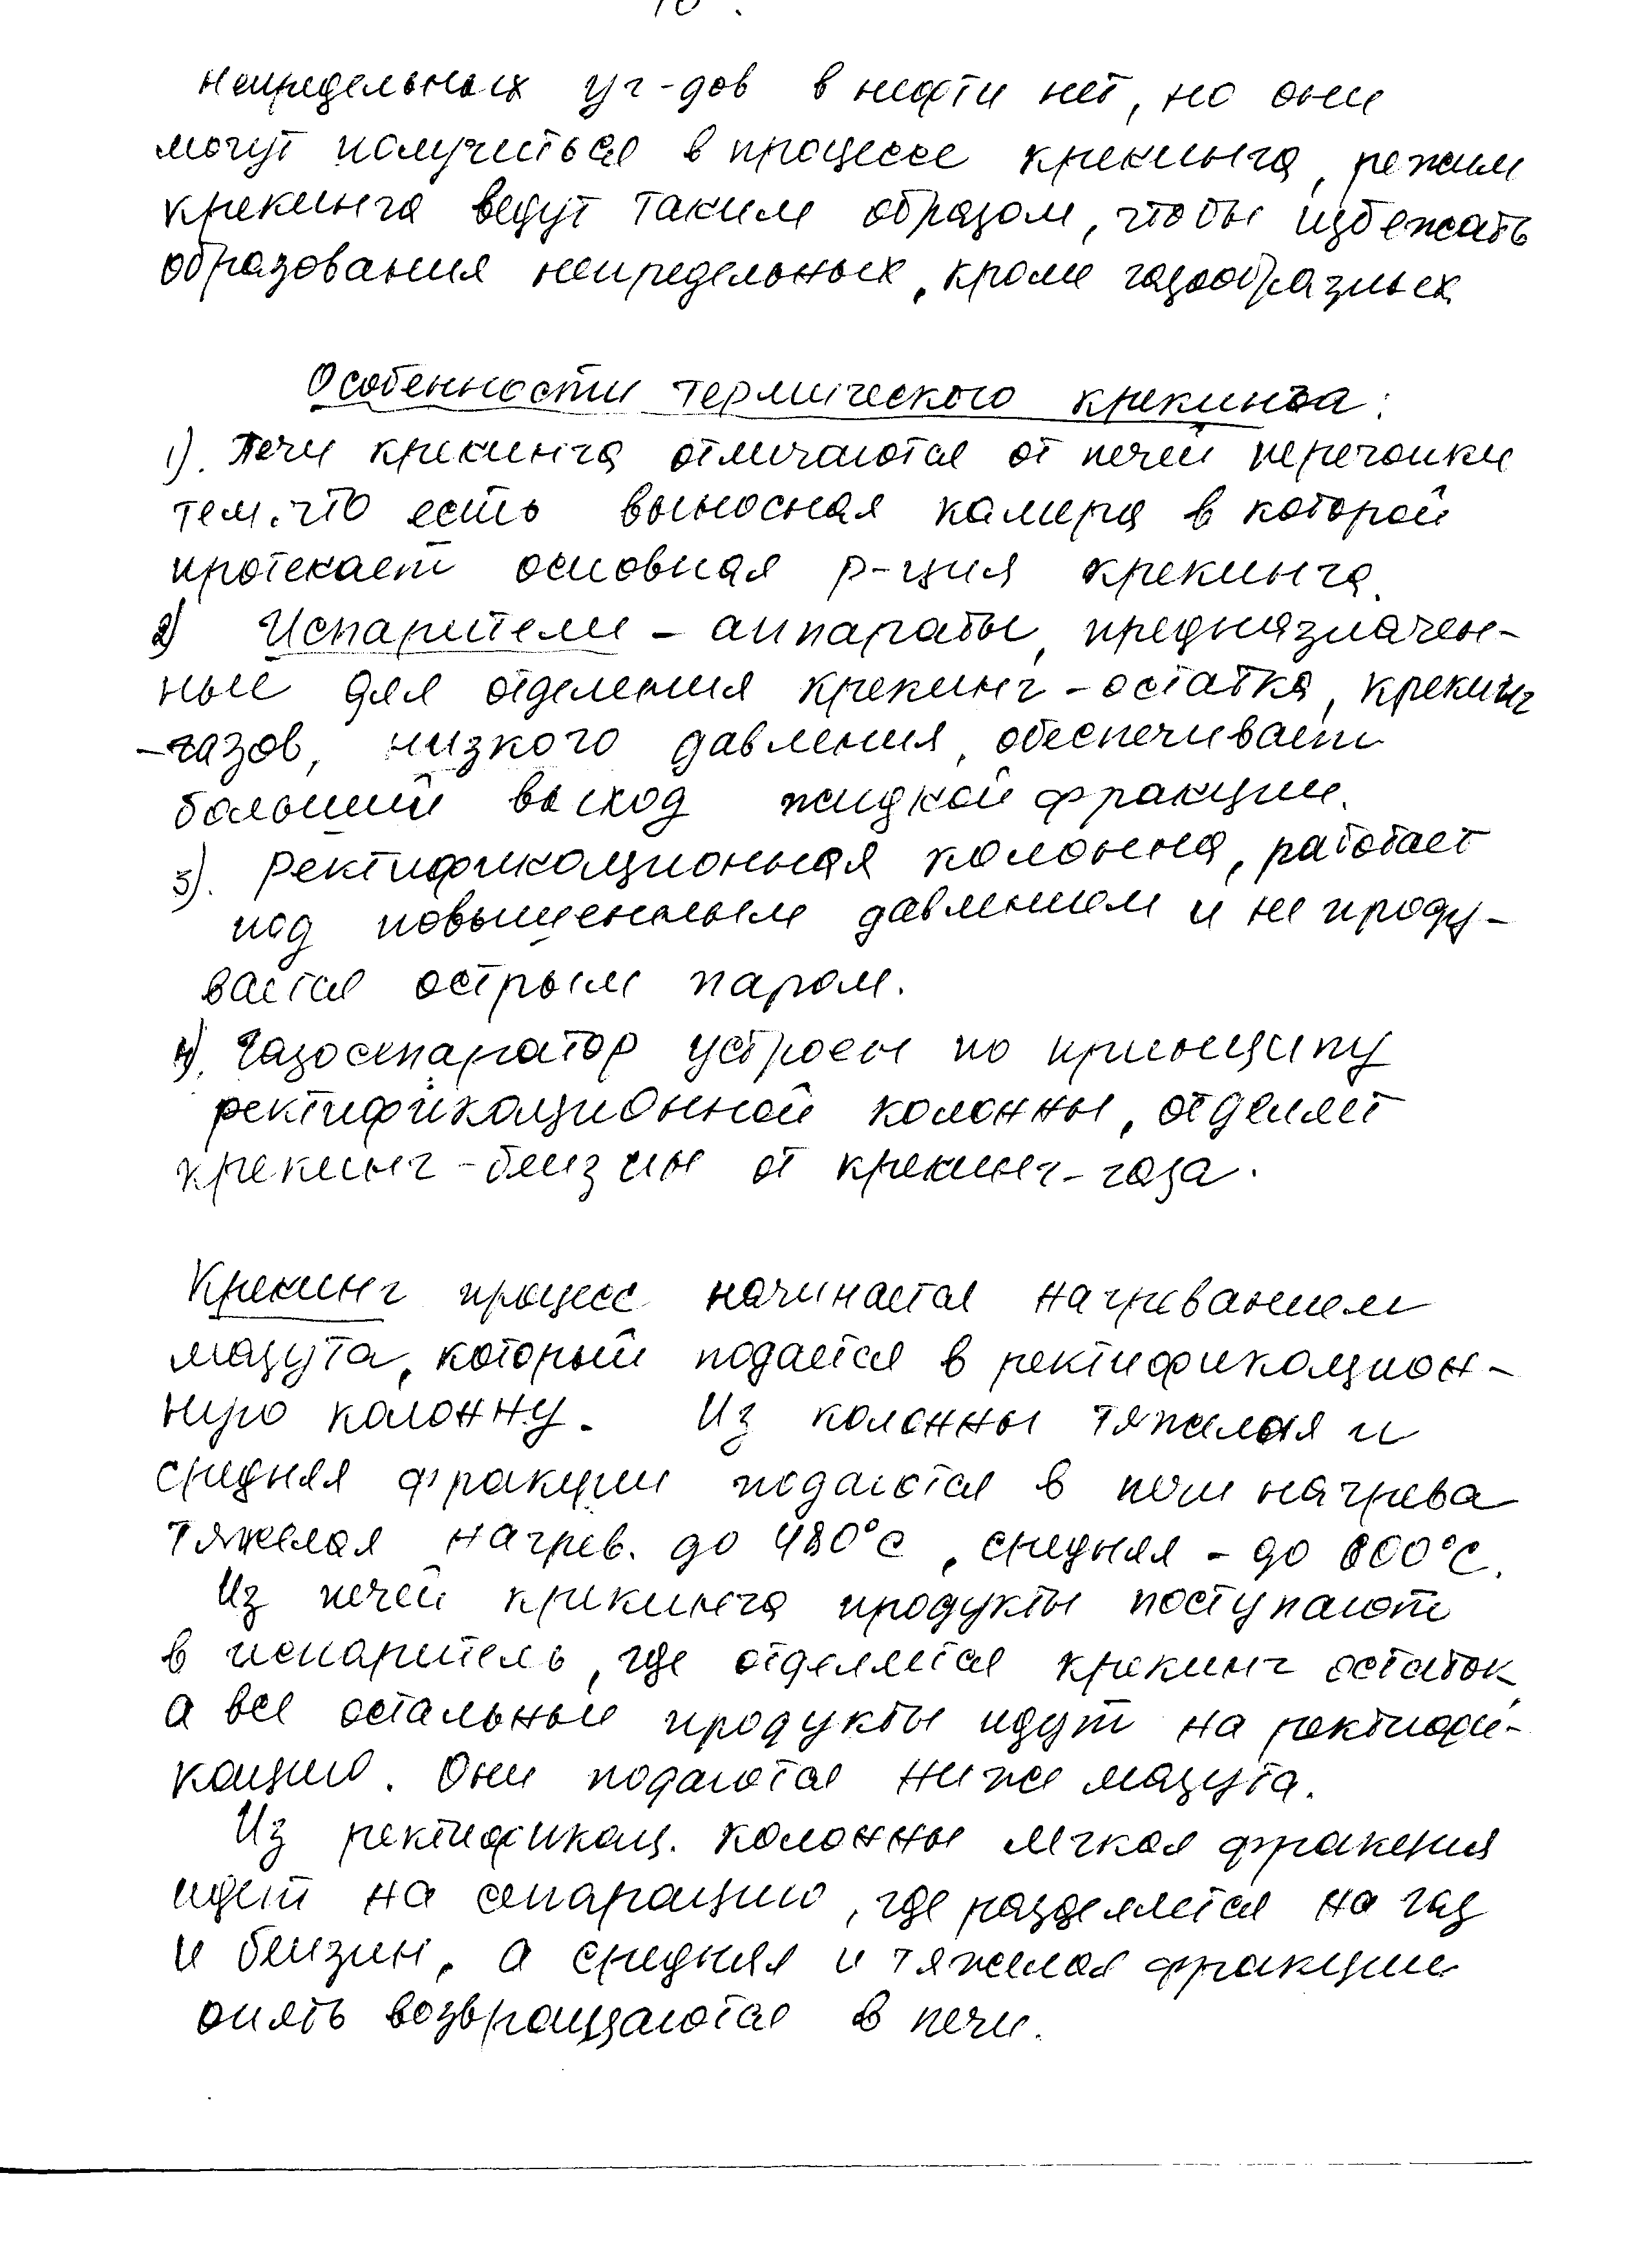 непредельных уг-дов в нефти нет, но они
могут получиться в процессе крекинга, режим
крекинга ведут таким образом, чтобы избежать
образования непредельных, кроме газообразных
Особенности термического крекинга:
1). Печи крекинга отличаются от печей перегонки
тем, что есть выносная камера в которой
протекает основная р-ция крекинга.
2) Испарители – аппараты, предназначен-
ные для отделения крекинг-остатка, крекинг
-газов, низкого давления, обеспечивает
больший выход жидкой фракции.
3). Ректификационная колонна, работает
под повышенным давлением и не проду-
вается острым паром.
4). Газосепаратор устроен по принципу
ректификационной колонны, отделяет
крекинг-бензин от крекинг-газа.
Крекинг процесс начинается нагреванием
мазута, который подается в ректификацион-
ную колонну. Из колонны тяжелая и
средняя фракции подаются в печи нагрева
тяжелая нагрев. до 480°С, средняя - до 600°С.
Из печей крекинга продукты поступают
в испаритель, где отделяется крекинг остаток,
а все остальные продукты идут на ректифи-
кацию. Они подаются ниже мазута.
Из ректификац. колонны легкая фракция
идет на сепарацию, где разделяется на газ
и бензин, а средняя и тяжелая фракции
опять возвращаются в печи.